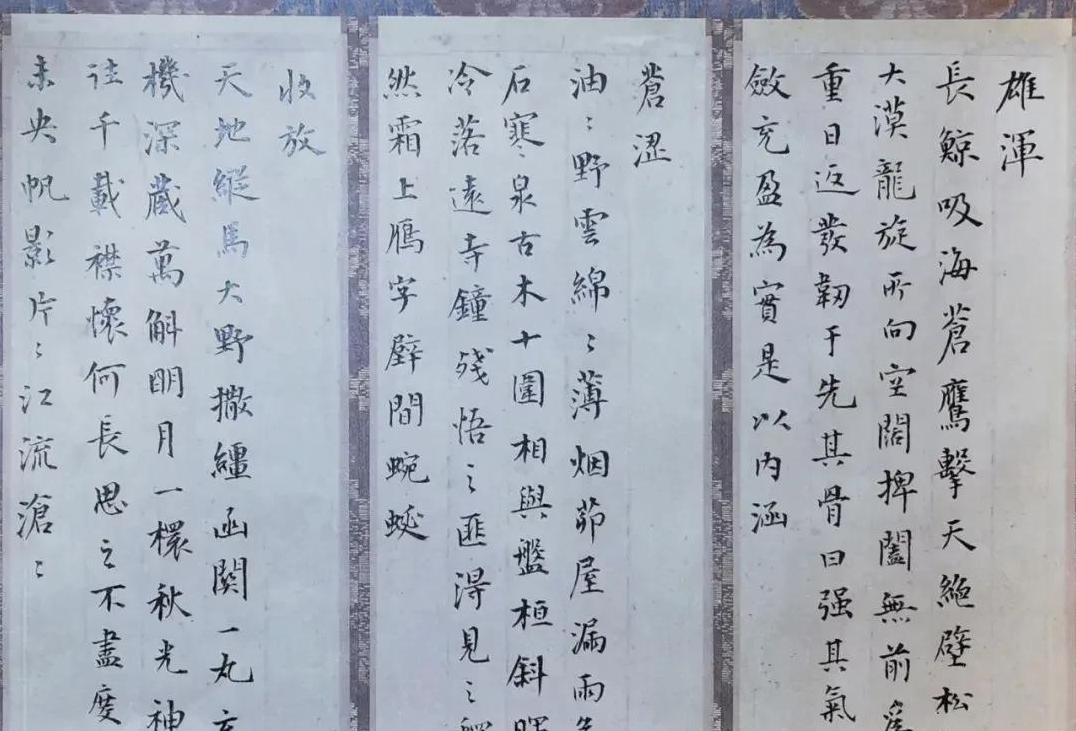 雄渾
長鯨吸海蒼鷹擊天絕壁松
大漠龍旋所向空闊捭闔無前
重日返發韌于先其骨曰强其氣
斂充盈為實是以內涵
蒼澀
油〻野雲綿〻薄烟茆屋漏雨
石寒〻泉古木十圍相與盤桓斜暉
冷落遠寺鐘殘悟之匪淂見之
然霜上鴈字壁間蜿蜒
收放
天地縱馬大野撒繮函関一丸
機深藏萬斛明月一櫰秋光神
往千載襟懷何長思之不盡度
未央帆影片〻江流滄〻